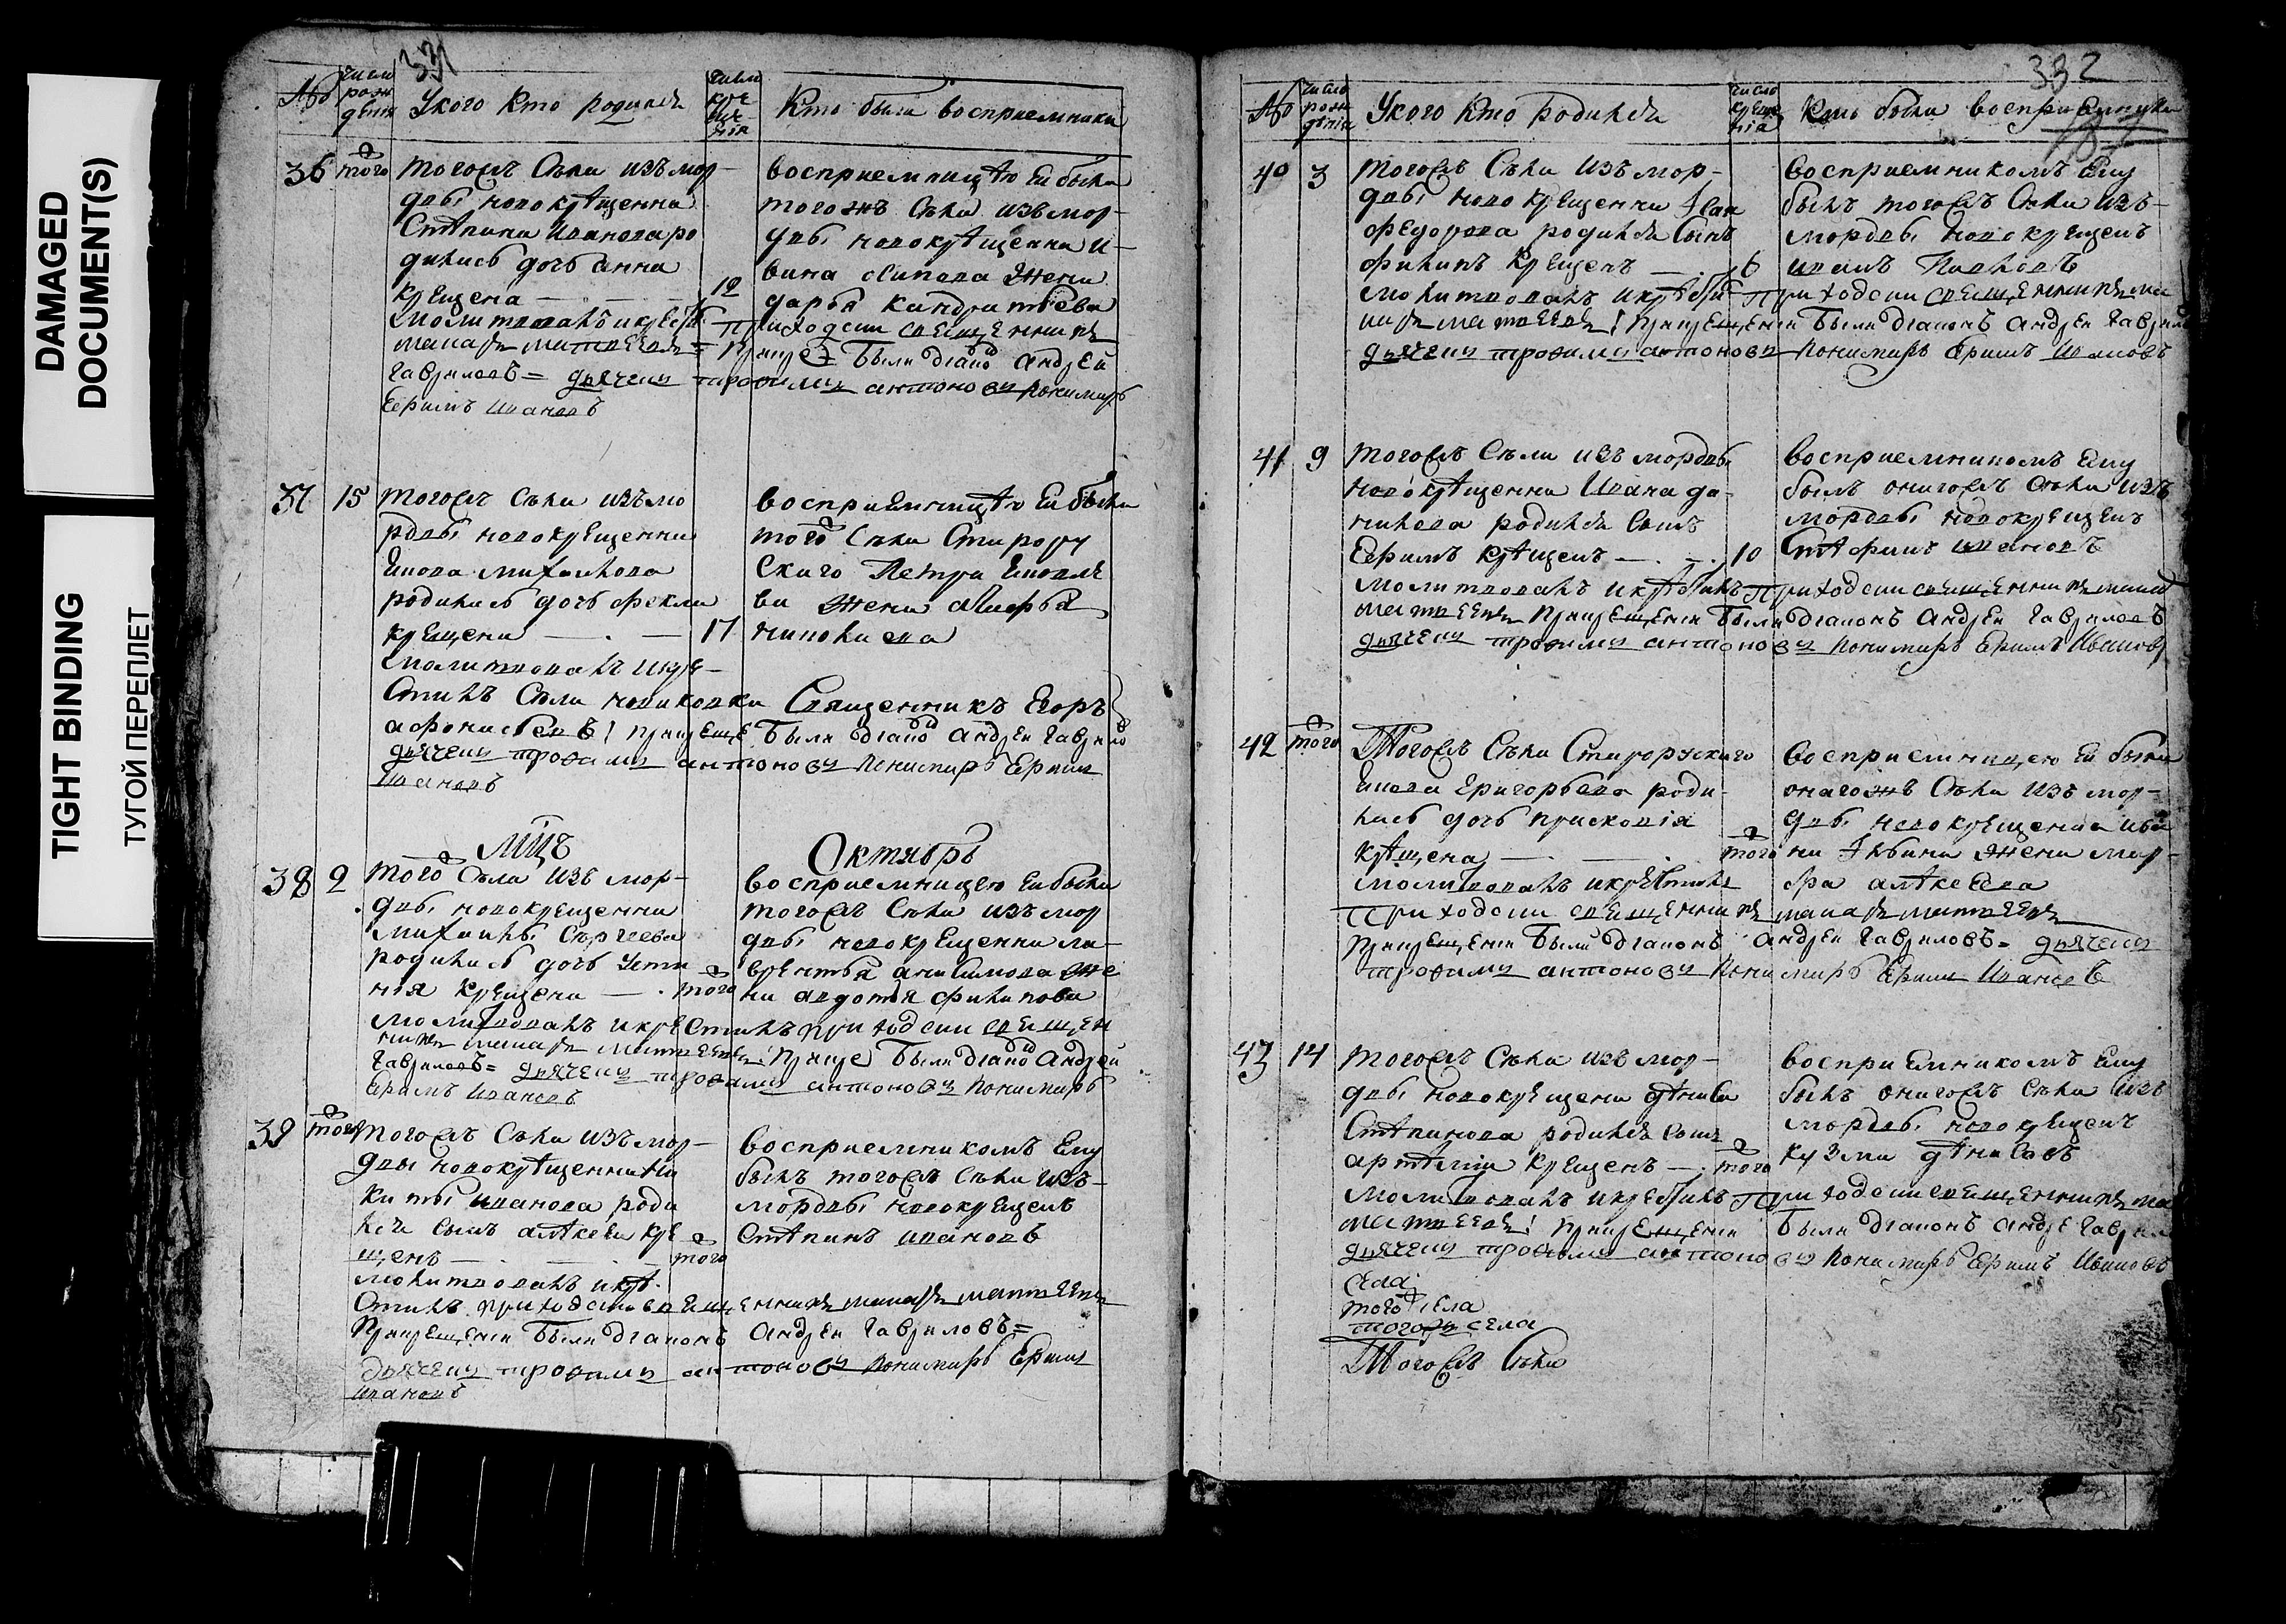 DAMAGED
DOCUMENT(S)
TIGHT BINDING
ТУГОЙ ПЕРЕПЛЕТ
331
№
число рождения
Укого Кто родился
число крещения
Кто были восприемники
36 того
тогожъ Села изъ мор-
двы новокрещенна
Степана Иванова ро
дилась дочь Анна
крещена — 12
молитвовалъ и крест.
приходски священникъ
макаръ матвеевъ =
при крещ были диако Андрей
Гавриловъ = дьячекъ трофимъ антоновъ пономарь
Ефимъ Ивановъ
восприемницею Ей была
тогожъ Села изъ мор-
двы новокрещенна И-
вана Жена
дарья Кандратьева
37 15
тогожъ Села изъ мо
рдвы новокрещенна
Михайлова
родилась дочь фекла
крещена — 17
молитвовалъ и кре-
стилъ Села Священникъ Егоръ
афонасьевъ! при креще были диако Андрей Гаврило
дьячекъ трофимъ антоновъ Пономарь Ефимъ
Ивановъ
восприемницею Ей была
того Села Старору
скаго Петра
ва жена Марфа
мцъ Октябрь
38 2
того Села изъ мор-
двы новокрещенна
Михаилы Сергеева
родилась дочь Усти
ния крещена — того
молитвовалъ и крестилъ приходски священ
никъ макаръ матвеевъ! при креще были диако Андрей
Гавриловъ = дьячекъ трофимъ антоновъ Пономарь
Ефимъ Ивановъ
восприемницею Ей была
тогожъ Села изъ мор
двы новокрещенна ла-
врентья анисимова же
на авдотья филипова
39 того
тогожъ Села изъ мор-
двы новокрещенна Ни
киты Иванова роди
лся сынъ алексеи кре
щенъ — того
молитвовалъ и кре-
стилъ приходски священникъ макаръ матвеевъ
при крещении были диаконъ Андреи Гавриловъ =
дьячекъ трофимъ антоновъ Пономарь Ефимъ
Ивановъ
восприемникомъ Ему
былъ тогожъ Села изъ-
мордвы новокрещенъ
Степанъ Ивановъ
332
№
число рождения
Укого Кто Родился
число крещения
Кто были восприемники
40 3
тогожъ Села изъ мор-
двы новокрещенна
Федорова родился сынъ
филипъ крещенъ — 6
молитвовалъ и крести приходски священникъ ма
каръ матвеевъ! при крещении были диаконъ Андреи Гаврило
дьячекъ трофимъ антоновъ Пономарь Ефимъ Ивановъ
восприемникомъ Ему
былъ тогожъ Села изъ-
мордвы новокрещенъ
иванъ Павловъ
41 9
тогожъ Села изъ мордвы
новокрещенна Ивана да-
нилова родился сынъ
Ефимъ крещенъ — 10
молитвовалъ и крестилъ приходски священникъ макар
матвеевъ при крещении были диаконъ Андреи Гавриловъ
дьячекъ трофимъ антоновъ Пономарь Ефимъ Иванов
восприемникомъ Ему
былъ онагожъ Села изъ
мордвы новокрещенъ
Стефанъ Ивановъ
42 того
Тогожъ Села Старорускаго
Григорьева роди-
лась дочь прасковія
крещена — того
молитвовалъ и крестилъ
приходски священникъ макаръ матвеевъ
при крещении были диаконъ Андреи Гавриловъ = дьячекъ
трофимъ антоновъ Пономарь Ефимъ Ивановъ
восприемницею Ей была
онагожъ Села изъ мор-
двы новокрещенна ива
на жена мар-
фа алексеева
43 14
тогожъ Села изъ мор-
двы новокрещена дениса
Степанова родился сынъ
артемии крещенъ — того
молитвовалъ и крестилъ приходски священникъ ма
матвеевъ! при крещении были диаконъ Андре Гаврил
дьячекъ трофимъ антоновъ Пономарь Ефимъ Ивановъ
восприемникомъ Ему
былъ онагожъ Села изъ
мордвы новокрещенъ
кузма денисовъ
Села
того села
тогожъ села
Тогожъ Села